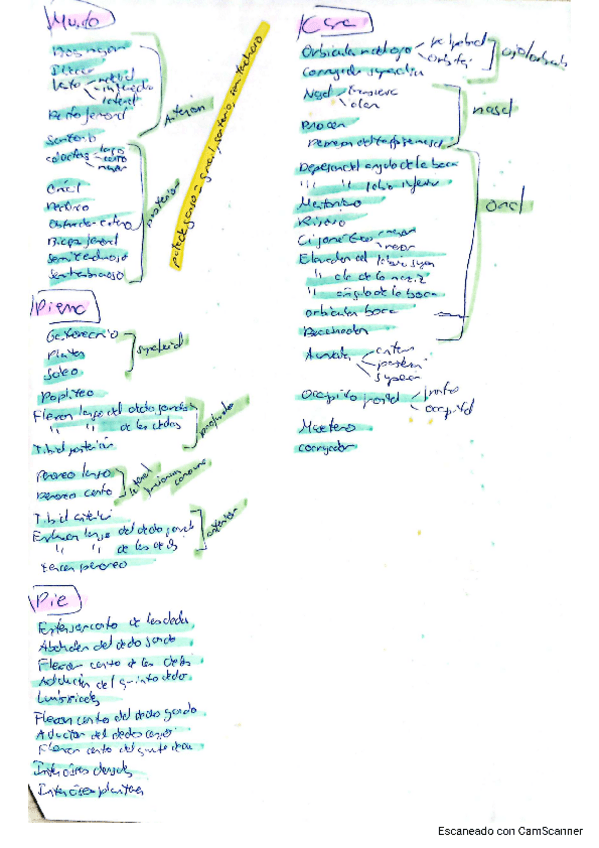 Muslo
Psoas mayor
Iliaco
Vasto medial
intermedio
lateral
Recto femoral
Anterior
Sartorio
aductores largo
corto
mayor
Grácil
Pectíneo
Obturador externo
Biceps femoral
Semitendinoso
Semimembranoso
posterior
pata de ganso = gracil, sartorio, semitendinoso
Pierna
Gastrocnemio
Plantar
Soleo
superficial
Popliteo
Flexor largo del dedo gordo
" " de los dedos
Tibial posterior
profundo
Peroneo largo
Peroneo corto
lateral
Tibial anterior
Extensor largo del dedo gordo
" " de los dedos
tercer peroneo
anterior
Pie
Extensor corto de los dedos
Abductor del dedo gordo
Flexor corto de los dedos
Abductor del quinto dedo
Lumbricales
Flexor corto del dedo gordo
Aductor del dedo gordo
Flexor corto del quinto dedo
Interóseos dorsales
Interóseos plantares
Cara
Orbicular del ojo palpebral
orbital
Corrugador superciliar
ojo/orbital
Nasal transversa
alar
Procer
Depresor del tabique nasal
nasal
Depresor del angulo de la boca
" " labio inferior
Mentoniano
Risorio
Cigomatico mayor
menor
Elevador del labio superior
" ala de la nariz
" angulo de la boca
orbicular boca
Buccinador
oral
Auricular anterior
posterior
superior
Occipito frontal frontal
occipital
Masetero
Escaneado con CamScanner